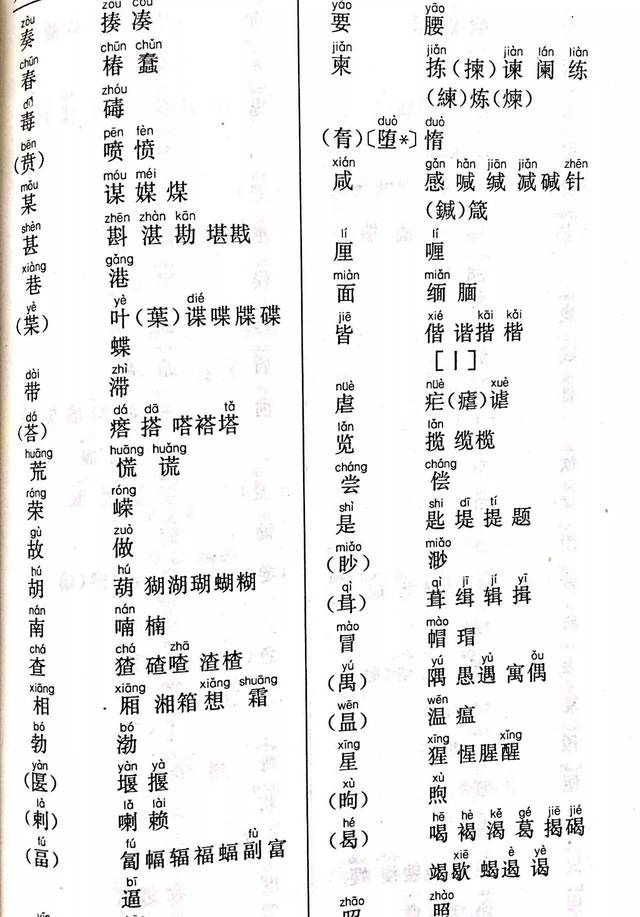 zòu zòu còu
奏 揍 凑
chūn chūn chǔn
春 椿 蠢
dú zhóu
毒 碡
bēn pēn fèn
(贲) 喷 愤
mǒu móu méi
某 谋 媒 煤
shèn zhēn zhàn kān
甚 斟 湛 勘 堪戡
xiàng gǎng
巷 港
yè yè dié
(枼) 叶(葉)谍喋牒碟
蝶
dài zhì
带 滞
dá dá dā tǎ
(荅) 瘩 搭 嗒褡塔
huāng huāng huǎng
荒 慌 谎
róng róng
荣 嵘
gù zuò
故 做
hú hú
胡 葫 猢湖瑚蝴糊
nán nán
南 喃 楠
chá chá zhā
查 猹 碴喳 渣楂
xiāng xiāng xiǎng shuāng
相 厢 湘箱 想 霜
bó bó
勃 渤
yàn yàn yà
(匽) 堰 揠
là lǎ lài
(剌) 喇 赖
fú fú fù
(畐) 匐 幅辐福蝠副富
bī
逼
yào yāo
要 腰
jiǎn jiǎn jiàn lán liàn
柬 拣(揀)谏 阑 练
(練)炼(煉)
duò duò
(育)〔堕*〕惰
xián gǎn hǎn jiān jiǎn zhēn
咸 感 喊 缄 减碱针
(鍼)箴
lí lí
厘 喱
miàn miǎn
面 缅 腼
jiē xié kāi kǎi
皆 偕 谐揩 楷
[丨]
nüè nüè xuè
虐 疟(瘧)谑
lǎn lǎn
览 揽 缆榄
cháng cháng
尝 偿
shì shi dī tí
是 匙 堤 提 题
miǎo miǎo
(眇) 渺
qì qì jī jí yī
(咠) 葺 缉 辑 揖
mào mào
冒 帽 瑁
yú yú yù ǒu
(禺) 隅 愚遇 寓偶
wēn wēn
(昷) 温 瘟
xīng xīng xǐng
星 猩 惺腥醒
xù xù
(昫) 煦
hé hē hè kě gé jiē jié
(曷) 喝 褐 渴 葛 揭碣
xiē è yè
竭歇 蝎遏 谒
zhāo zhào
昭 照